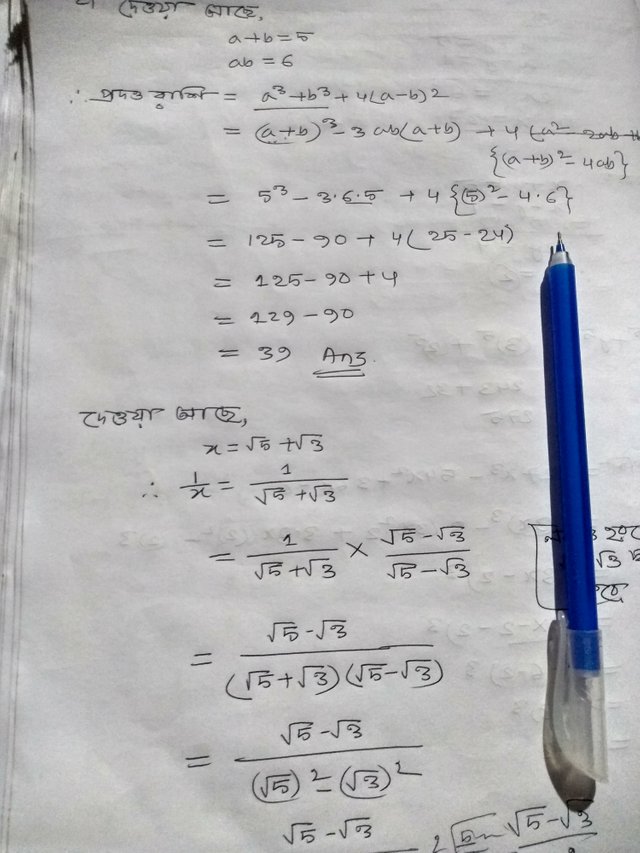 দেওয়া আছে,
a+b=5
ab=6
∴ প্রদত্ত রাশি = a³+b³+4(a-b)2
= (a+b)³-3ab(a+b) + 4 (a²-2ab+
{(a+b)²-4ab}
= 5³-3·6·5 + 4{(5)²-4·6}
= 125-90+4(25-24)
= 125-90+4
= 129-90
= 39 Ans.
দেওয়া আছে,
x=√5+√3
∴ 1/x = 1/(√5+√3)
= 1/(√5+√3) × (√5-√3)/(√5-√3)
= (√5-√3)/((√5+√3)(√5-√3))
= (√5-√3)/((√5)²-(√3)²)
√5-√3
√5-√3